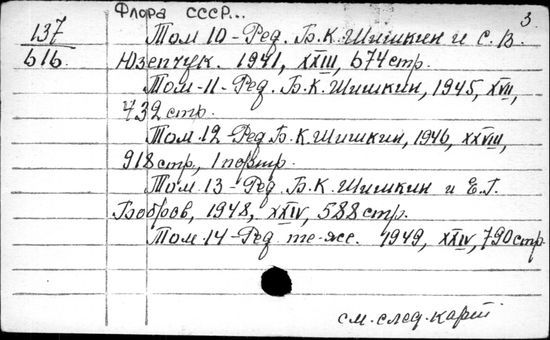 Флора СССР... 3.
137 Том 10 - Ред. Б.К. Шишкин и С.В.
616 Юзепчук. 1941, XXIII, 674 стр.
Том-11- Ред. Б.К. Шишкин, 1945, XVII,
432 стр.
Том 12 - Ред Б.К. Шишкин, 1946, XXVIII,
918 стр., 1 портр.
Том 13 - Ред. Б.К. Шишкин и Е.Г.
Бобров, 1948, XXIV, 588 стр.
Том 14 - Ред те-же. 1949, XXIV, 790 стр.
см. след. карт